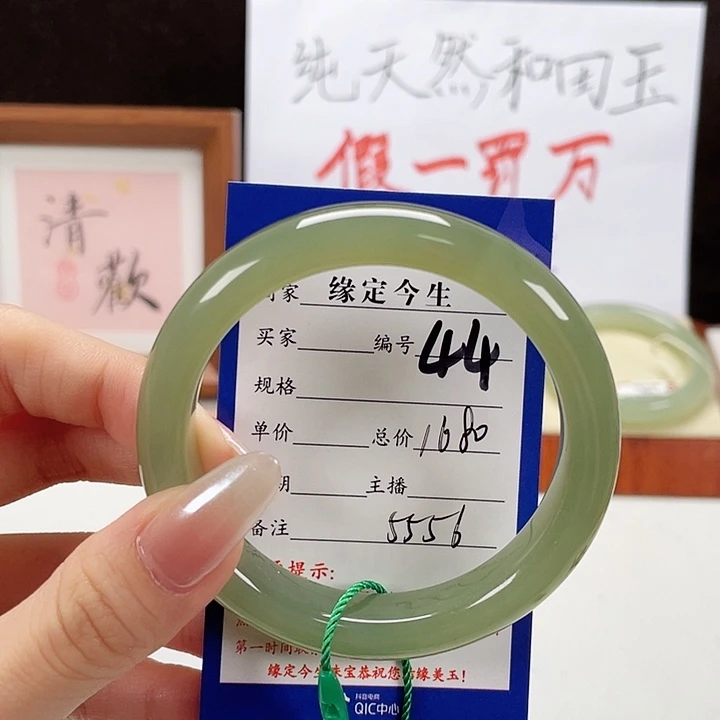 纯天然和田玉
假一罚万
清
欢
家 缘定今生
买家 编号 44
规格
单价 总价 1680
主播
备注 5556
提示:
第一时间
缘定今生珠宝恭祝您 缘美玉!
抖音电商
QIC中心